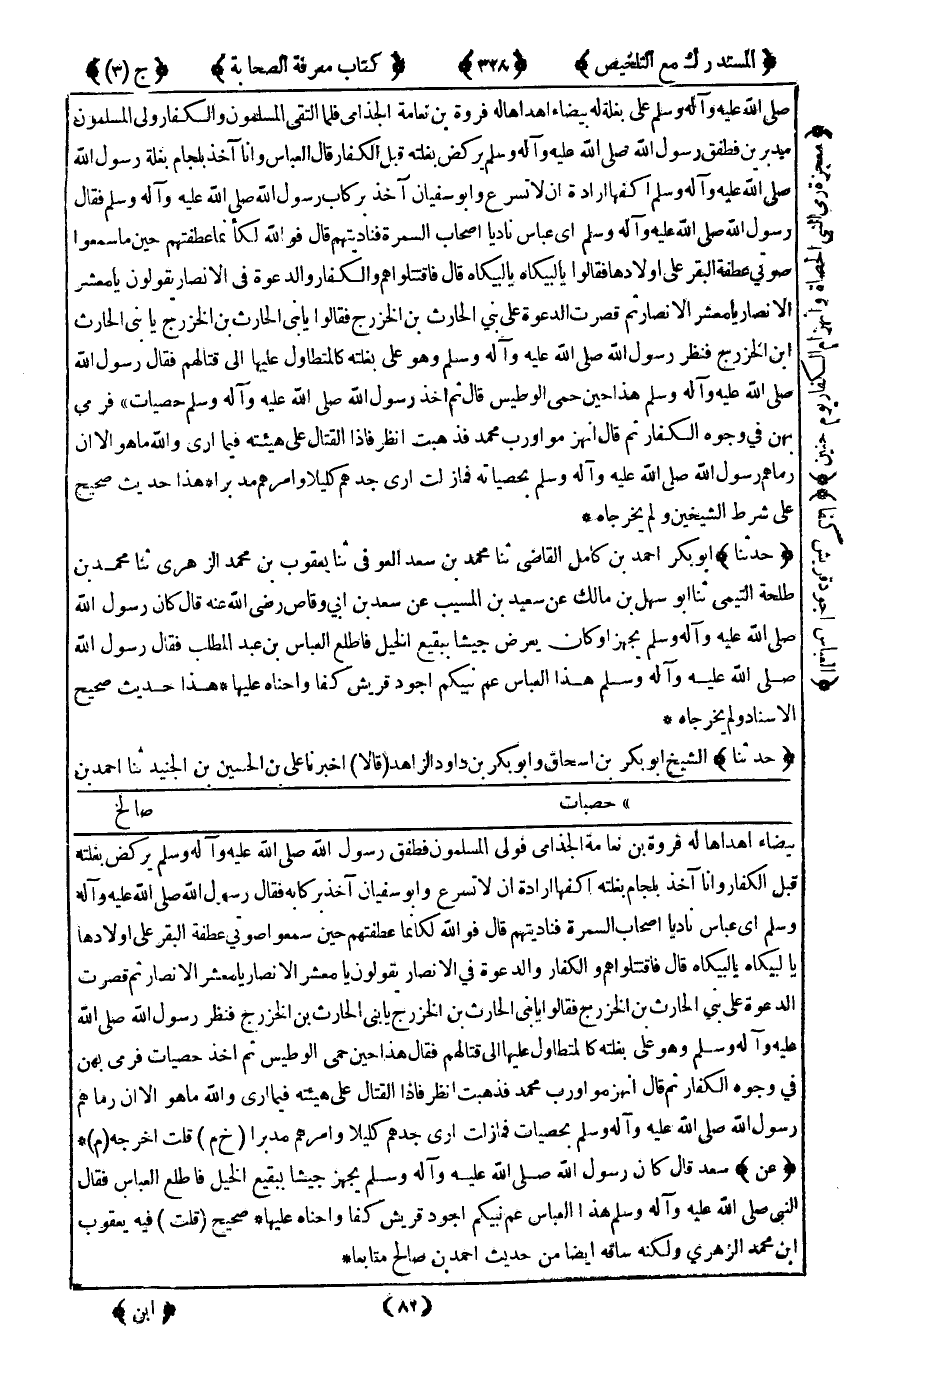 ﴿ المستدرك مع التلخيص ﴾ ﴿ ٣٢٨ ﴾ ﴿ كتاب معرفة الصحابة ﴾ ﴿ ج (٣) ﴾
صلى الله عليه وآله وسلم على بغلة له بيضاء اهداها له فروة بن نعامة الجذامى فلما التقى المسلمون والكفار ولى المسلمون
مدبرين فطفق رسول الله صلى الله عليه وآله وسلم يركض بغلته قبل الكفار قال العباس وانا آخذ بلجام بغلة رسول الله
صلى الله عليه وآله وسلم اكفها ارادة ان لا تسرع وابو سفيان آخذ بركاب رسول الله صلى الله عليه وآله وسلم فقال
رسول الله صلى الله عليه وآله وسلم اى عباس ناد يا اصحاب السمرة فناديتهم قال فو الله لكأنما عطفتهم حين ما سمعوا
صوتي عطفة البقر على اولادها فقالوا يالبيكاه يالبيكاه يالبيكاه قال فاقتتلوا هم والكفار والدعوة فى الانصار يقولون يا معشر
الانصار يا معشر الانصار ثم قصرت الدعوة على بني الحارث بن الخزرج فقالوا يا بنى الحارث بن الخزرج يا بنى الحارث
ابن الخزرج فنظر رسول الله صلى الله عليه وآله وسلم وهو على بغلته كالمتطاول عليها الى قتالهم فقال رسول الله
صلى الله عليه وآله وسلم هذا حين حمى الوطيس قال ثم اخذ رسول الله صلى الله عليه وآله وسلم حصيات » فرمى
بهن في وجوه الكفار ثم قال انهزموا ورب محمد فذهبت انظر فاذا القتال على هيئته فيما ارى والله ما هو الا ان
رماهم رسول الله صلى الله عليه وآله وسلم بحصياته فمازلت ارى جدهم كليلا وامرهم مدبرا * هذا حديث صحيح
على شرط الشيخين ولم يخرجاه *
﴿ حدثنا ﴾ ابو بكر احمد بن كامل القاضى ثنا محمد بن سعد العوفى ثنا يعقوب بن محمد الزهرى ثنا محمد بن
طلحة التيمى ثنا ابو سهل بن مالك عن سعيد بن المسيب عن سعد بن ابي وقاص رضى الله عنه قال كان رسول الله
صلى الله عليه وآله وسلم يجهز او كان يعرض جيشا ببقيع الخيل فاطلع العباس بن عبد المطلب فقال رسول الله
صلى الله عليه وآله وسلم هذا العباس عم نبيكم اجود قريش كفا واحناه عليها * هذا حديث صحيح
الاسناد ولم يخرجاه *
﴿ حدثنا ﴾ الشيخ ابو بكر بن اسحاق وابو بكر بن داود الزاهد (قالا) اخبرنا على بن الحسين بن الجنيد ثنا احمد بن
» حصبات صالح
بيضاء اهداها له فروة بن نعامة الجذامى فولى المسلمون فطفق رسول الله صلى الله عليه وآله وسلم يركض بغلته
قبل الكفار وانا آخذ بلجام بغلته اكفها ارادة ان لا تسرع وابو سفيان آخذ بركابه فقال رسول الله صلى الله عليه وآله
وسلم اى عباس ناد يا اصحاب السمرة فناديتهم قال فو الله لكانما عطفتهم حين سمعوا صوتي عطفة البقر على اولادها
يا لبيكاه يالبيكاه قال فاقتتلوا هم والكفار والدعوة في الانصار يقولون يا معشر الانصار يا معشر الانصار ثم قصرت
الدعوة على بني الحارث بن الخزرج فقالوا يا بنى الحارث بن الخزرج يا بنى الحارث بن الخزرج فنظر رسول الله صلى الله
عليه وآله وسلم وهو على بغلته كالمتطاول عليها الى قتالهم فقال هذا حين حمى الوطيس ثم اخذ حصيات فرمى بهن
في وجوه الكفار ثم قال انهزموا ورب محمد فذهبت انظر فاذا القتال على هيئته فيما ارى والله ماهو الا ان رماهم
رسول الله صلى الله عليه وآله وسلم بحصيات فمازلت ارى جدهم كليلا وامرهم مدبرا (خ م) قلت اخرجه (م) *
﴿ عن ﴾ سعد قال كان رسول الله صلى الله عليه وآله وسلم يجهز جيشا ببقيع الخيل فاطلع العباس فقال
النبي صلى الله عليه وآله وسلم هذا العباس عم نبيكم اجود قريش كفا واحناه عليها * صحيح (قلت) فيه يعقوب
ابن محمد الزهري ولكنه ساقه ايضا من حديث احمد بن صالح متابعا *
﴿ ابن ﴾ (٨٢)
﴿ العباس اجود قريش كفا ﴾